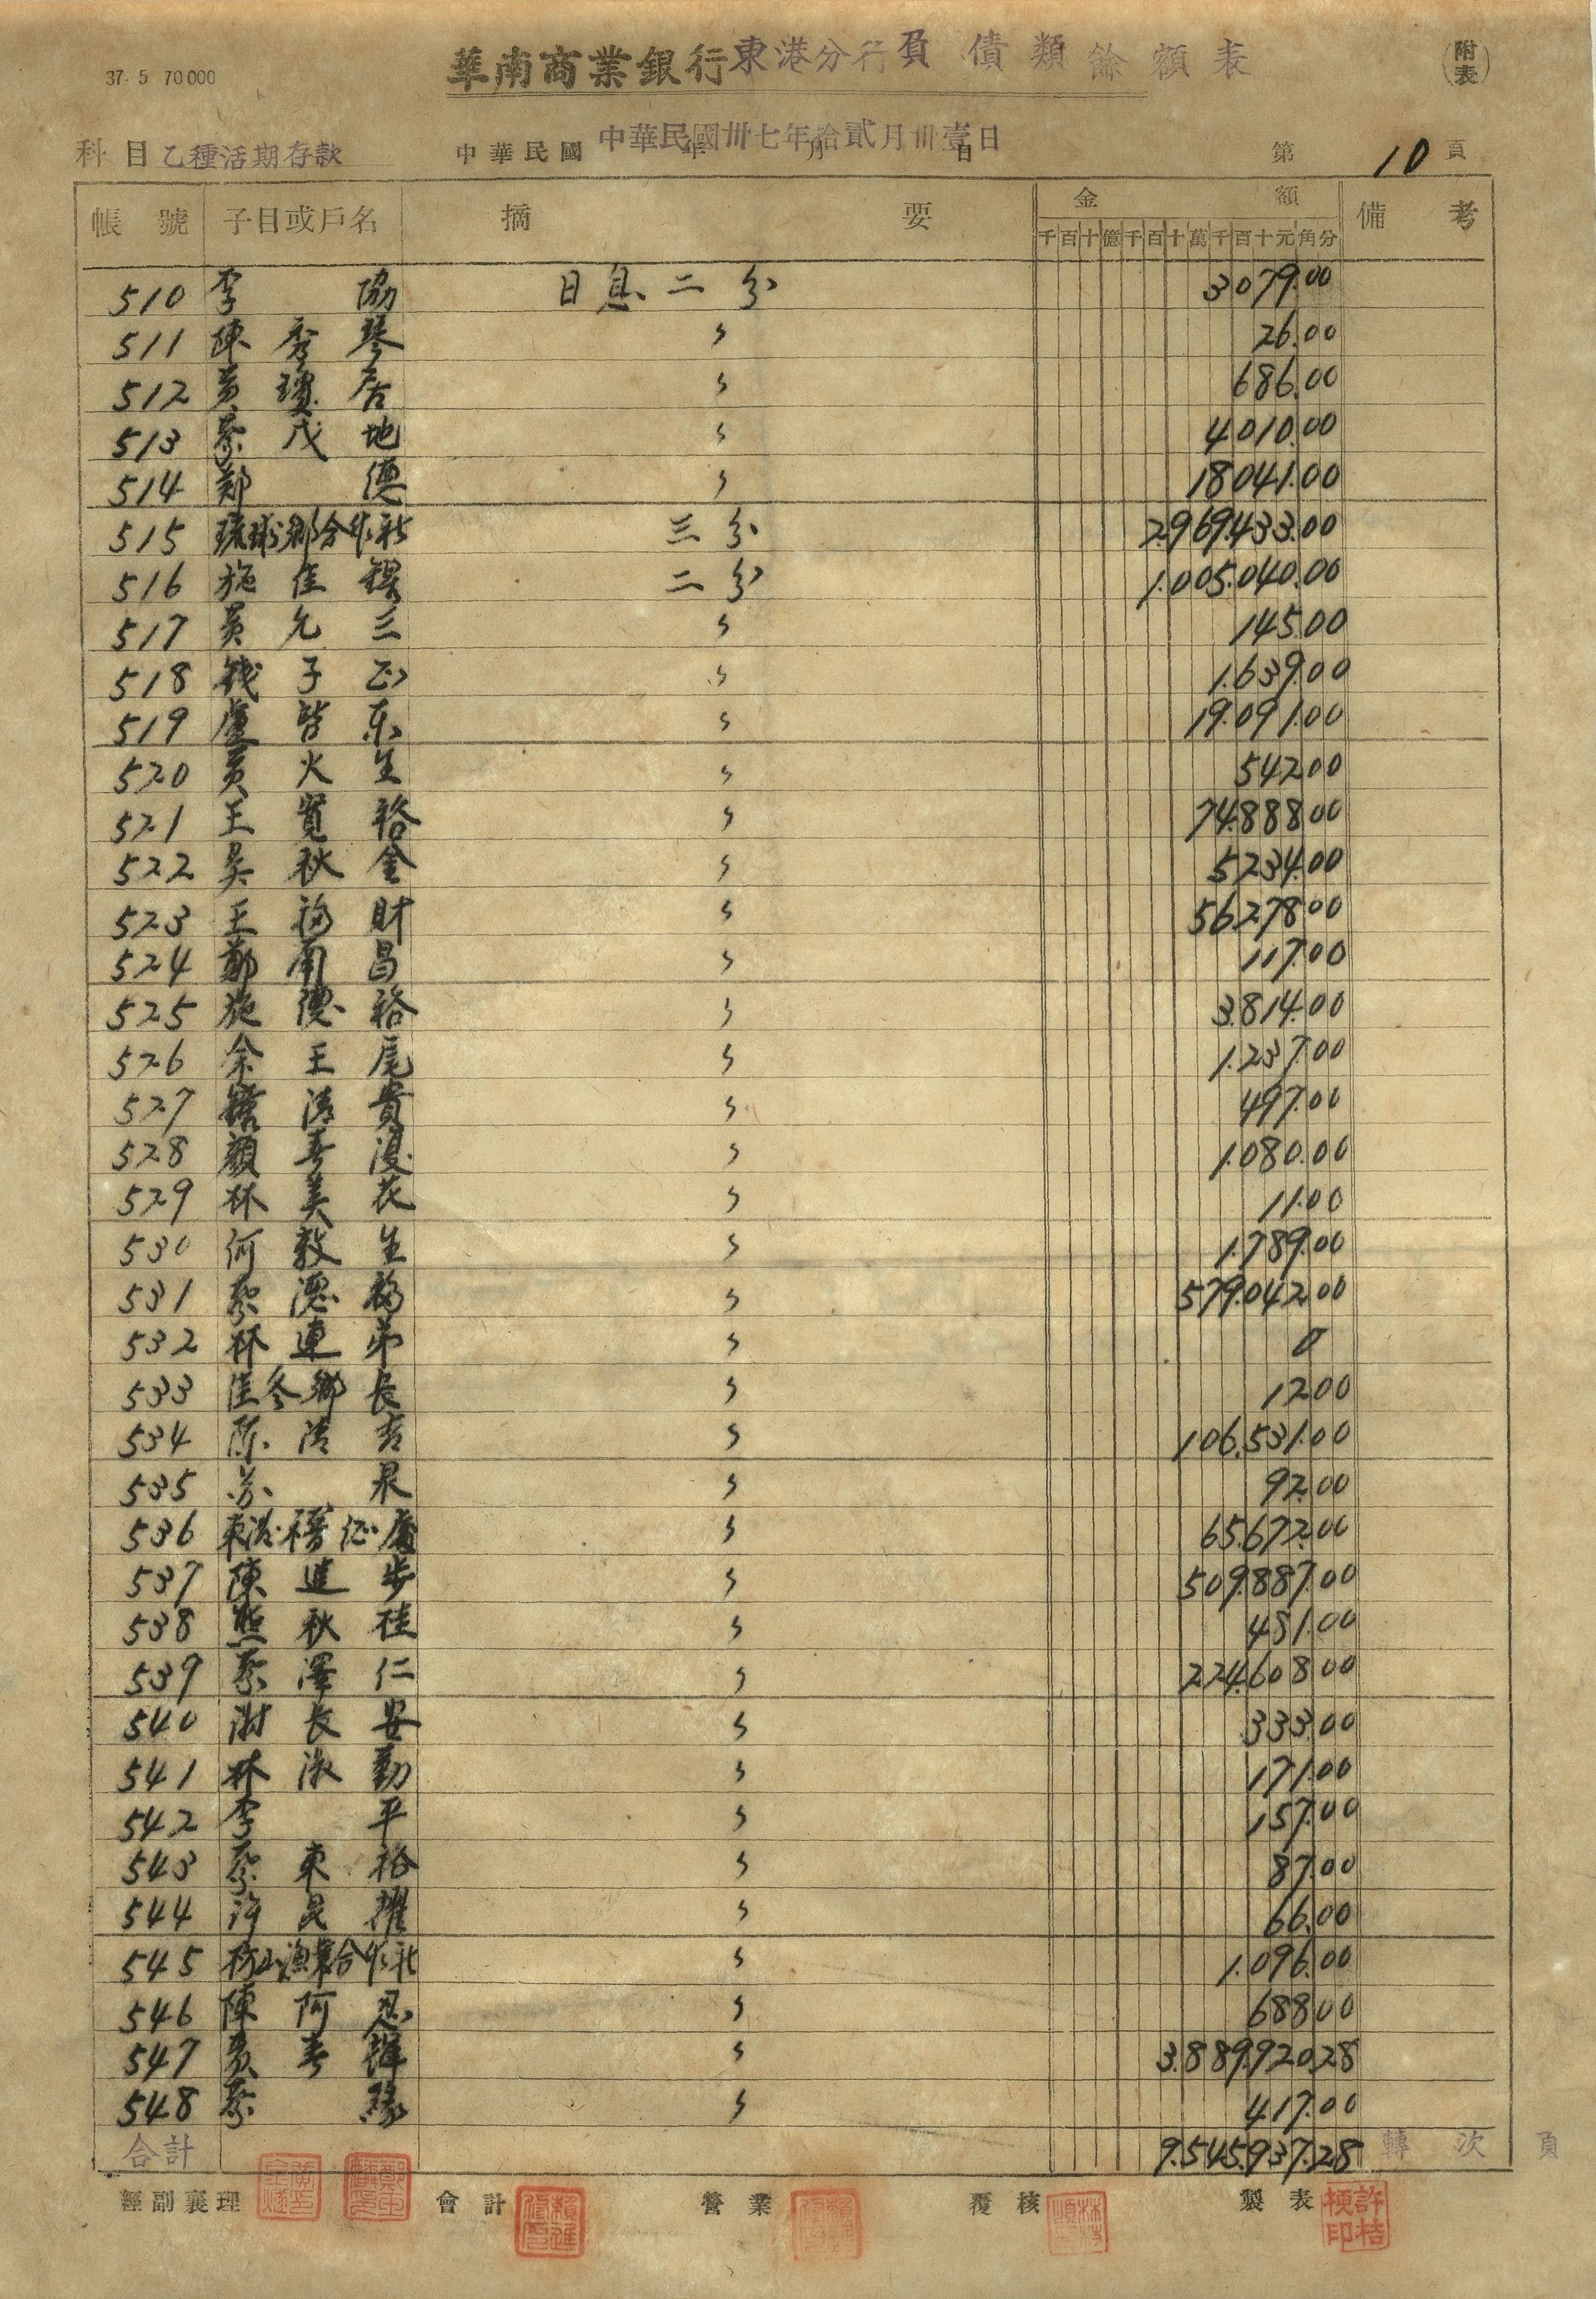 37. 5 70000
華南商業銀行東港分行負債類餘額表
(附表)
科目 乙種活期存款 中華民國 年 月 日 中華民國卅七年拾貳月卅壹日 第 10 頁
帳號 子目或戶名 摘要 金額 備考
千百十億千百十萬千百十元角分
510 李協 日息二分 3079.00
511 陳秀琴 〃 26.00
512 黃瓊居 〃 686.00
513 蔡茂地 〃 4010.00
514 鄭德 〃 18041.00
515 琉球鄉合作社 三分 2.969.433.00
516 施佳錕 二分 1.005.040.00
517 黃允三 〃 145.00
518 錢子正 〃 1.639.00
519 盧皆东 〃 19.091.00
520 黃火生 〃 542.00
521 王寬裕 〃 74.888.00
522 吳秋金 〃 5234.00
523 王福財 〃 56.278.00
524 鄭南昌 〃 117.00
525 施德裕 〃 3.814.00
526 余王尾 〃 1.237.00
527 清貴 〃 497.00
528 顏春漫 〃 1.080.00
529 林美花 〃 11.00
530 何教生 〃 1.789.00
531 蔡德福 〃 579.042.00
532 林連弟 〃 0
533 佳冬鄉長 〃 12.00
534 陈清吉 〃 106.531.00
535 苏泉 〃 92.00
536 東港稽征處 〃 65.672.00
537 陳進步 〃 509.887.00
538 熊秋桂 〃 451.00
539 蔡澤仁 〃 224.608.00
540 謝長安 〃 333.00
541 林淑勤 〃 171.00
542 李平 〃 157.00
543 蔡東裕 〃 87.00
544 許民權 〃 66.00
545 枋山漁業合作社 〃 1.096.00
546 陳阿忍 〃 688.00
547 黃春輝 〃 3.889.920.28
548 蔡緣 〃 417.00
合計 9.545.937.28 轉次頁
經副襄理 會計 營業 覆核 製表
許桔梗印